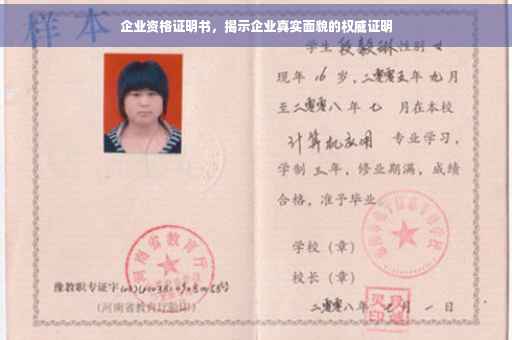 企业资格证明书，揭示企业真实面貌的权威证明
样本
学生 段毅琳 性别 女
现年 16 岁，二零零五年 九月
至二零零八年 七 月在本校
计算机应用 专业学习，
学制 三 年，修业期满，成绩
合格，准予毕业
学校（章）
校长（章）
二零零八年 七 月 一 日
河南省教育厅
豫教职专证字
（河南省教育厅验印）